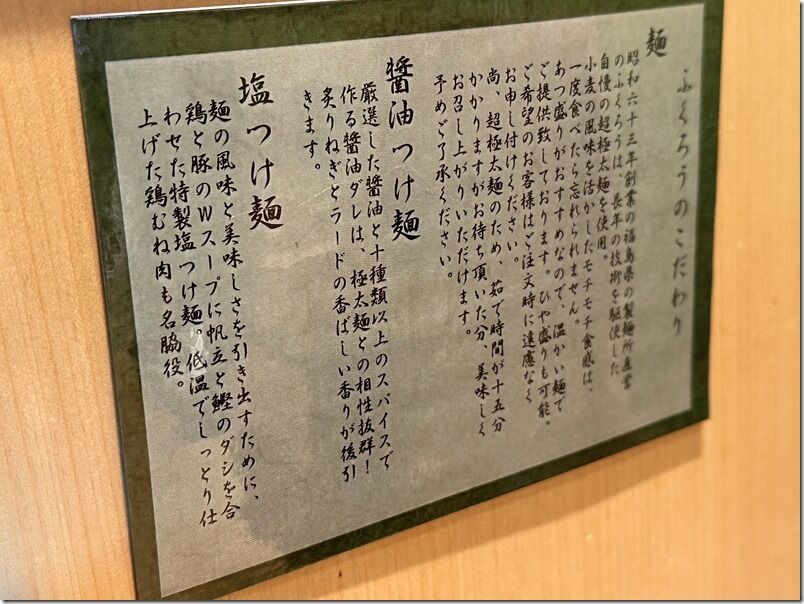 ふくろうのこだわり
麺
昭和六十三年創業の福島県の製麺所直営
のふくろうは、長年の技術を駆使した
自慢の超極太麺を使用。
小麦の風味を活かしたモチモチ食感は、
一度食べたら忘れられません。
あつ盛りがおすすめなので、温かい麺で
ご提供致しております。ひや盛りも可能。
ご希望のお客様はご注文時に遠慮なく
お申し付けください。
尚、超極太麺のため、茹で時間が十五分
かかりますがお待ち頂いた分、美味しく
お召し上がりいただけます。
予めご了承ください。
醤油つけ麺
厳選した醤油と十種類以上のスパイスで
作る醤油ダレは、極太麺との相性抜群！
炙りねぎとラードの香ばしい香りが後引
きます。
塩つけ麺
麺の風味と美味しさを引き出すために、
鶏と豚のWスープに帆立と鰹のダシを合
わせた特製塩つけ麺。低温でしっとり仕
上げた鶏むね肉も名脇役。